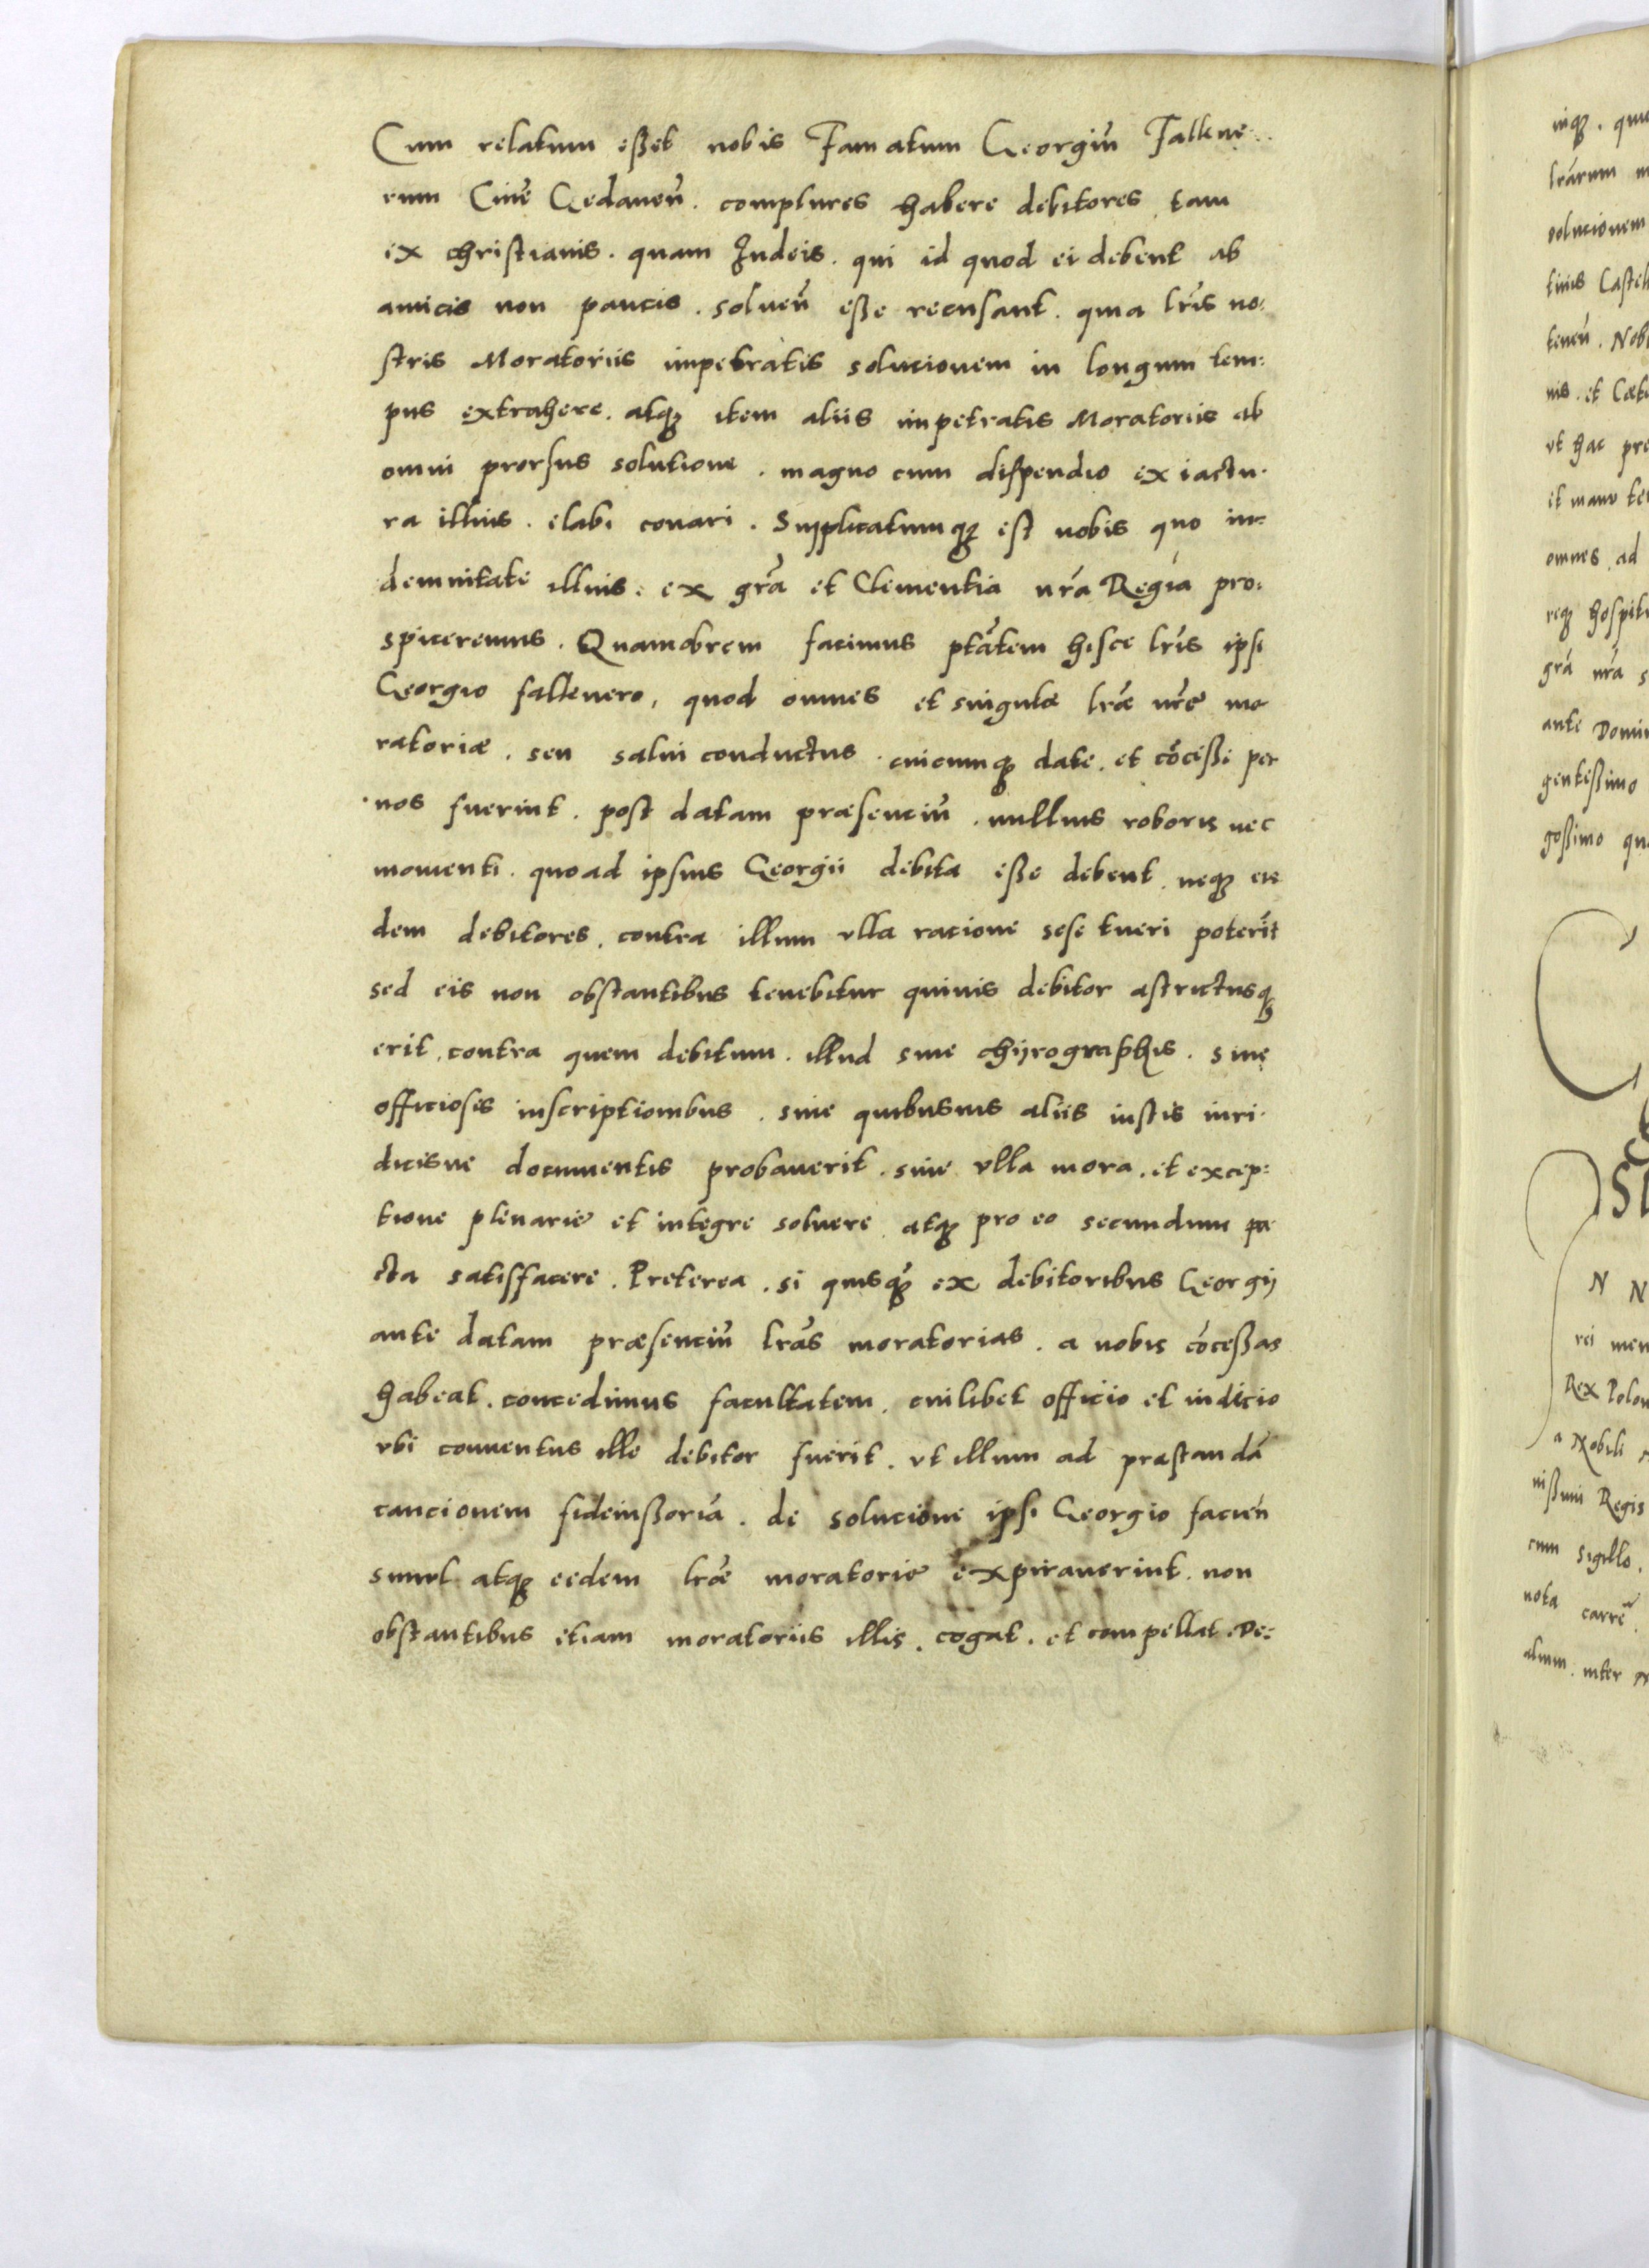 Cum relatum eßet nobis Famatum Georgiũ Fallene
rum Ciuẽ Gedaneñ. complures habere debitores tam
ex christianis. quam Iudeis. qui id quod ei debent ab
amicis non paucis. solueñ eße recusant. quia lr̃is no:
stris Moratoriis impetratis solucionem in longum tem:
pus extrahere. atq; item aliis impetratis Moratoriis ab
omni prorsus solutione. magno cum dispendio ex iactu.
ra illius. elabi conari. Supplicatumq; est nobis quo in:
demnitate illius. ex gr̃a et Clementia nr̃a Regia pro:
spiceremus. Quamobrem facimus ptãtem hisce lr̃is ipsi
Georgio fallenero, quod omnes et singulæ lr̃æ nr̃e mo
ratoriæ. seu salui conductus. cuicumq; date. et cõceßi per
nos fuerint. post datam præsenciũ. nullius roboris nec
momenti. quoad ipsius Georgii debita eße debent neq; eis
dem debitores. contra illum vlla racione sese tueri poterĩt
sed eis non obstantibus tenebitur quiuis debitor astrictusq;
erit, contra quem debitum. illud siue chijrographis. siue
officiosis inscriptionibus. siue quibusuis aliis iustis iuri.
dicisue documentis probauerit. sine vlla mora. et excep:
tione plenarie et integre soluere. atq; pro eo secundum pa
cta satisfacere. Preterea. si quisq; ex debitoribus Georgij
ante datam præsenciũ lr̃as moratorias. a nobis cõceßas
habeat. concedimus facultatem. cuilibet officio et iudicio
vbi conuentus ille debitor fuerit. vt illum ad præstandã
caucionem fideiußoriã. de solucione ipsi Georgio facień
simul atq; eedem lr̃æ moratorie expirauerint. non
obstantibus etiam moratoriis illis. cogat. et compellat. De:
inq;. que
lr̃arum
solucionem
teneñ. Nob
vt hac pre
omnes. ad
req; hospit
gr̃a nr̃a s
ante Domin
gentißimo
goßimo qu
N N
rei mem
Rex Polon
a Nobili
nißimi Regis
cum sigillo.
nota carrẽ
alium. inter